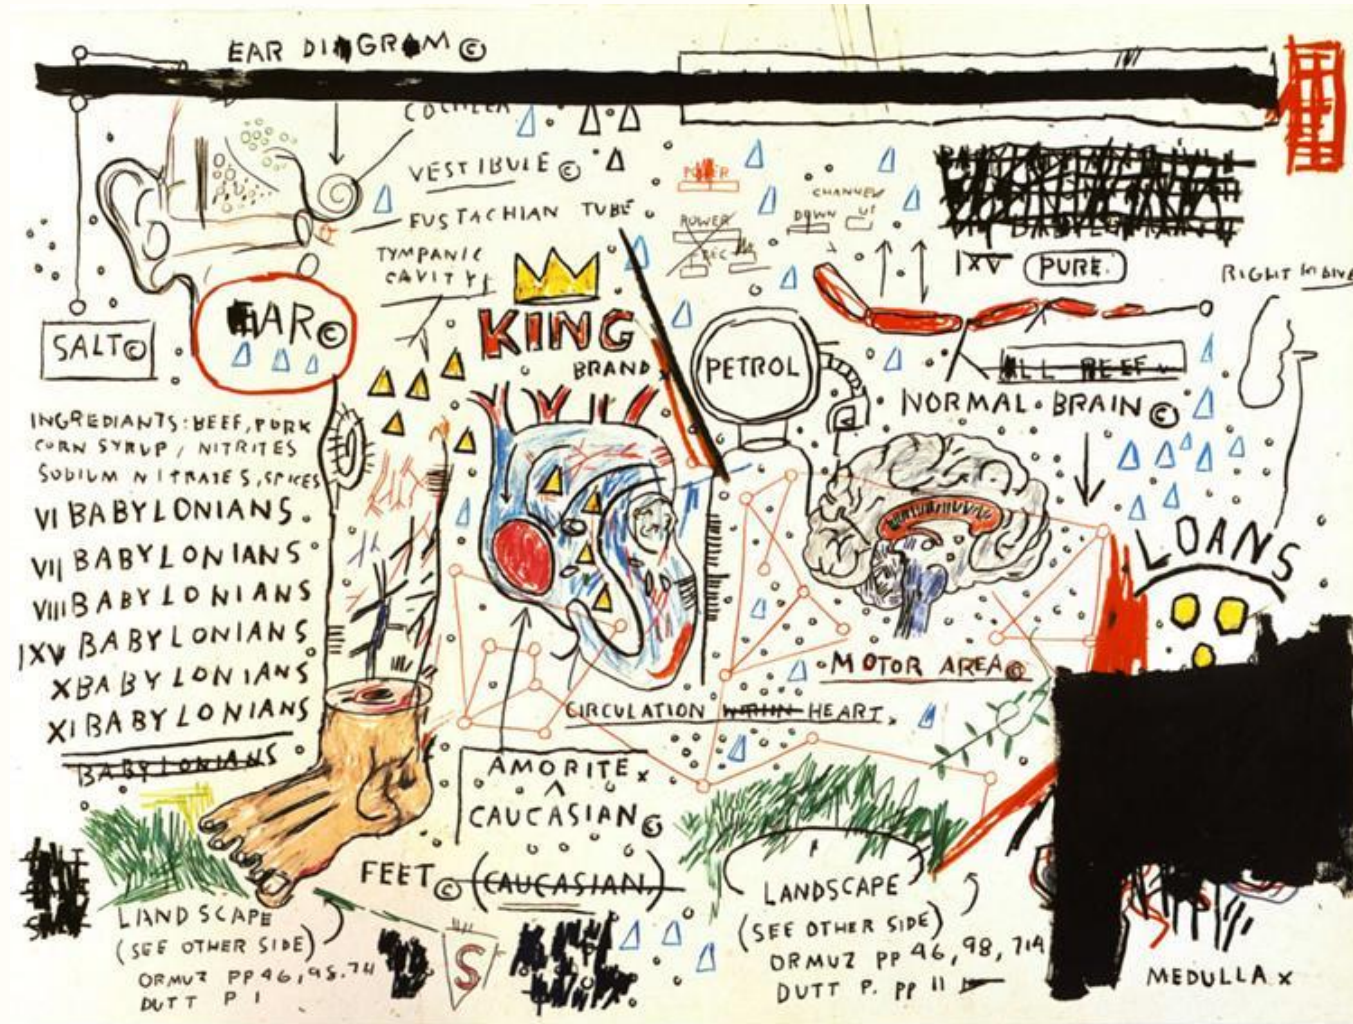 EAR DIAGRAM ©
COCHLEA
VESTIBULE ©
EUSTACHIAN TUBE
TYMPANIC
CAVITY
POWER
POWER
REC
CHANNEL
DOWN UP
IXV PURE.
RIGHT
EAR ©
SALT ©
KING
BRAND
PETROL
ALL BEEF
NORMAL BRAIN ©
INGREDIANTS: BEEF, PORK
CORN SYRUP / NITRITES
SODIUM NITRATES, SPICES
VI BABYLONIANS.
VII BABYLONIANS
VIII BABYLONIANS
IXV BABYLONIANS
X BABYLONIANS
XI BABYLONIANS
BABYLONIANS
LOANS
MOTOR AREA ©
CIRCULATION WITHIN HEART.
AMORITE x
CAUCASIAN ©
FEET © (CAUCASIAN)
LANDSCAPE
(SEE OTHER SIDE)
ORMUZ PP 46, 98. 74
DUTT P 1
S
LANDSCAPE
(SEE OTHER SIDE)
ORMUZ PP 46, 98, 71A
DUTT P. PP 11
MEDULLA x